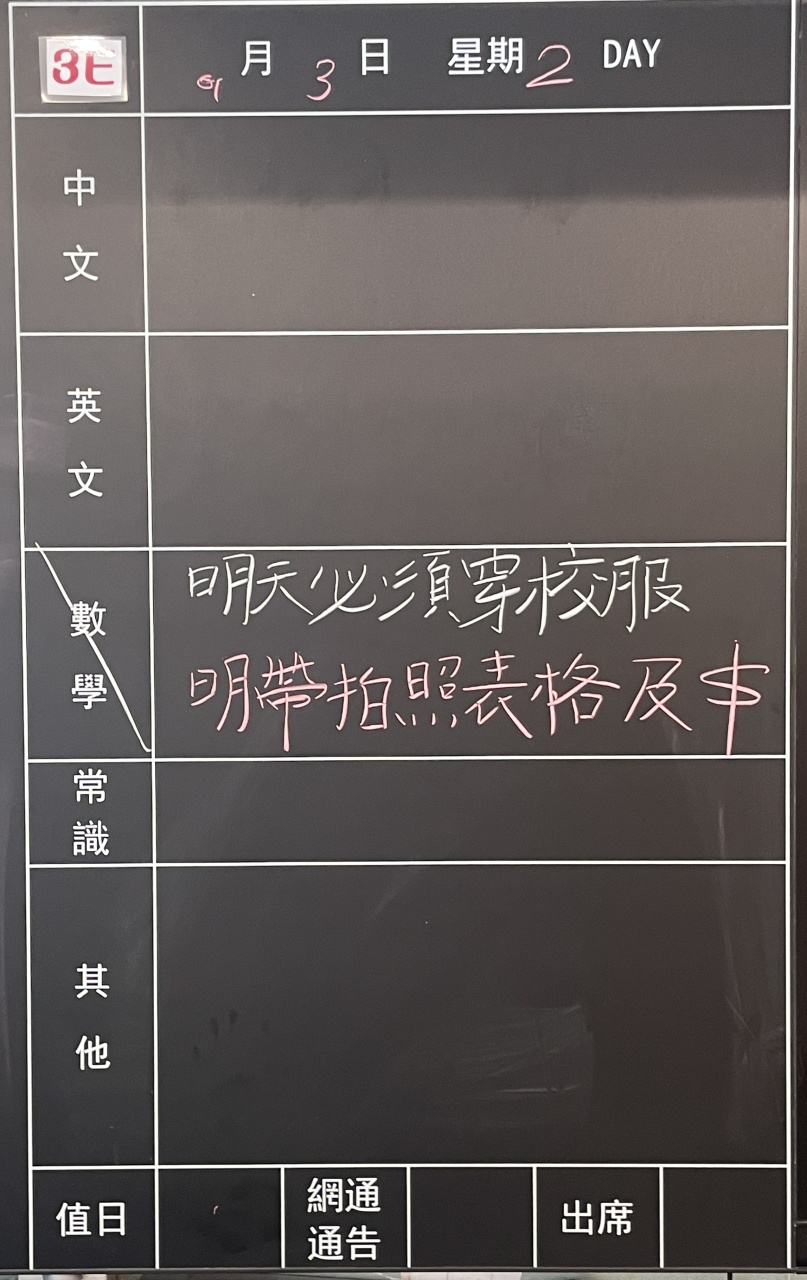 3E 9月3日 星期2 DAY
中文
英文
數學 明天必須穿校服
明帶拍照表格及$
常識
其他
值日 網通通告 出席